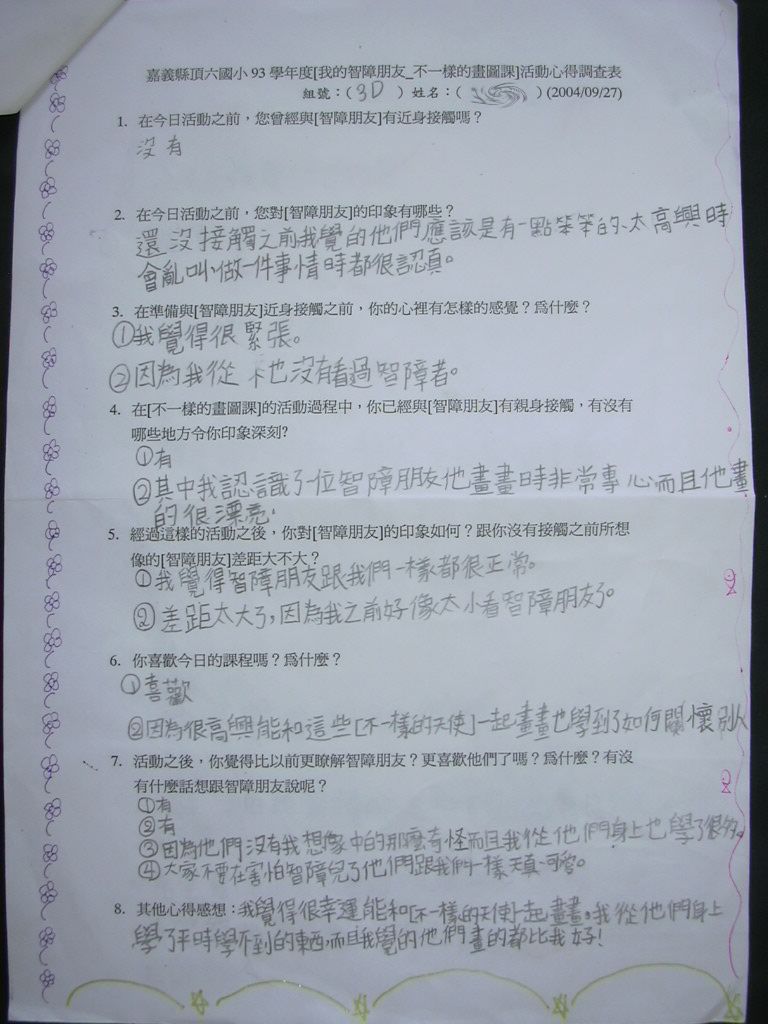 嘉義縣頂六國小 93 學年度[我的智障朋友_不一樣的畫圖課]活動心得調查表
組號：( 3D ) 姓名：( ) (2004/09/27)
1. 在今日活動之前，您曾經與[智障朋友]有近身接觸嗎？
沒有
2. 在今日活動之前，您對[智障朋友]的印象有哪些？
還沒接觸之前我覺的他們應該是有一點笨笨的、太高興時
會亂叫、做一件事情時都很認真。
3. 在準備與[智障朋友]近身接觸之前，你的心裡有怎樣的感覺？爲什麼？
①我覺得很緊張。
②因為我從不也沒有看過智障者。
4. 在[不一樣的畫圖課]的活動過程中，你已經與[智障朋友]有親身接觸，有沒有
哪些地方令你印象深刻?
①有
②其中我認識了一位智障朋友他畫畫時非常專心而且他畫
的很漂亮.
5. 經過這樣的活動之後，你對[智障朋友]的印象如何？跟你沒有接觸之前所想
像的[智障朋友]差距大不大？
①我覺得智障朋友跟我們一樣都很正常。
②差距太大了，因為我之前好像太小看智障朋友了。
6. 你喜歡今日的課程嗎？爲什麼？
①喜歡
②因為很高興能和這些[不一樣的天使]一起畫畫也學到了如何關懷別人
7. 活動之後，你覺得比以前更瞭解智障朋友？更喜歡他們了嗎？爲什麼？有沒
有什麼話想跟智障朋友說呢？
①有
②有
③因為他們沒有我想像中的那麼奇怪而且我從他們身上也學了很多。
④大家不要在害怕智障兒了他們跟我們一樣天真、可愛。
8. 其他心得感想：我覺得很幸運能和[不一樣的天使]一起畫畫，我從他們身上
學了平時學不到的東西，而且我覺的他們畫的都比我好！